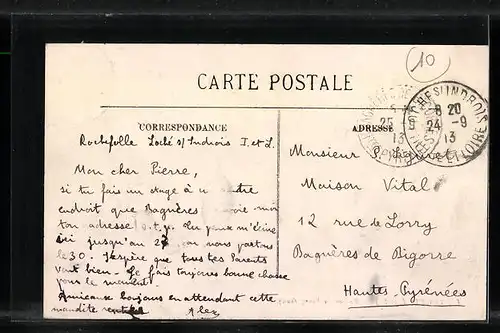 10
CARTE POSTALE
CORRESPONDANCE
ADRESSE
LOCHÉ S/ INDROIS
8 20
24 - 9
13
INDRE ET LOIRE
25
13
Rochefolle Loché s/ Indrois I. et L.
Mon cher Pierre,
si tu fais un stage à un autre
endroit que Bagnères envoie moi
ton adresse s.t.p. Tu peux m'écrire
ici jusqu'au 27 car nous partons
le 30. J'espère que tous tes Parents
vont bien - Je fais toujours bonne chasse
pour le moment
Amicaux bonjours en attendant cette
maudite rentrée Alex
Monsieur
Maison Vital
12 rue de Lorry
Bagnères de Bigorre
Hautes Pyrénées